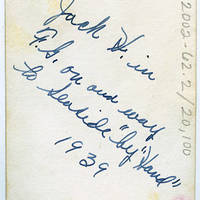 Jack H. in
F.S. on our way
to Seaside "by" Hand"
1939
2002-62.2/20,100